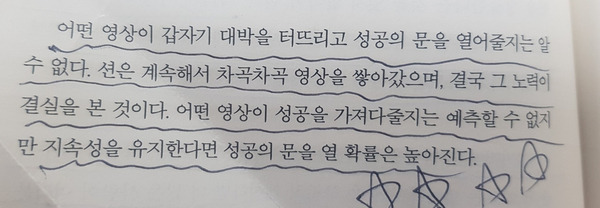 어떤 영상이 갑자기 대박을 터뜨리고 성공의 문을 열어줄지는 알
수 없다. 션은 계속해서 차곡차곡 영상을 쌓아갔으며, 결국 그 노력이
결실을 본 것이다. 어떤 영상이 성공을 가져다줄지는 예측할 수 없지
만 지속성을 유지한다면 성공의 문을 열 확률은 높아진다.